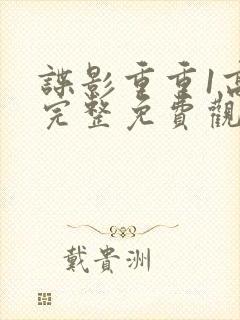 諜影重重1高
完整免費觀
戴貴洲